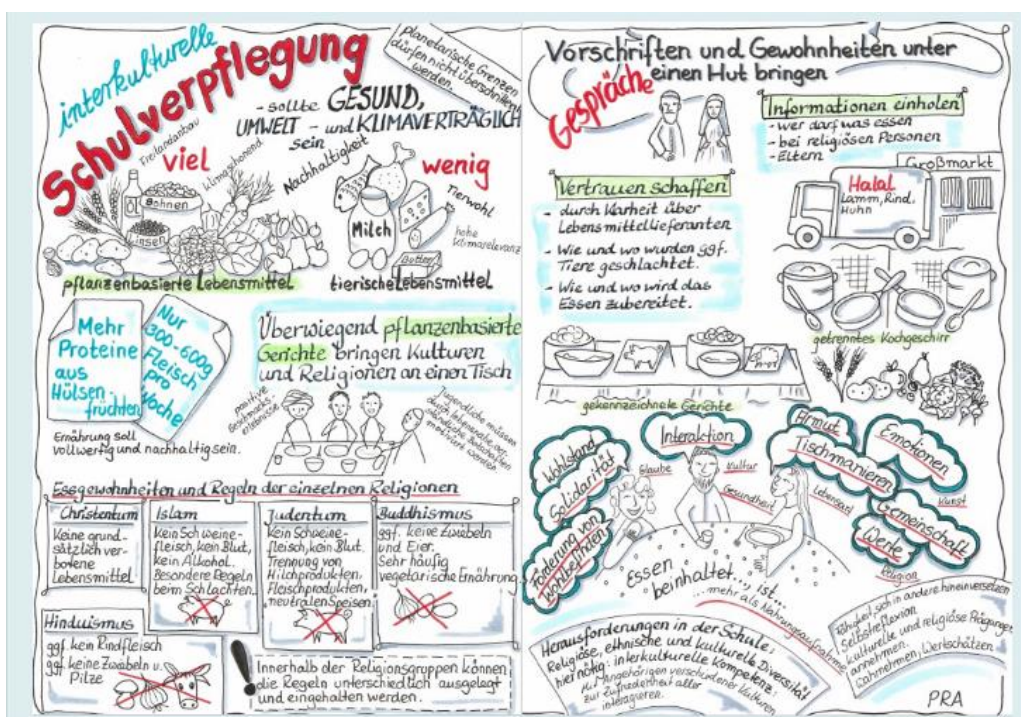 interkulturelle
Schulverpflegung
planetarische Grenzen
dürfen nicht überschritten
werden.
- sollte GESUND,
UMWELT - und KLIMAVERTRÄGLICH
sein
Freilandanbau
viel
Klimaschonend
Nachhaltigkeit
wenig
Tierwohl
hohe
Klimarelevanz
Bohnen
Linsen
Milch
Butter
pflanzenbasierte Lebensmittel
tierische Lebensmittel
Mehr
Proteine
aus
Hülsen-
früchten
Nur
300-600g
Fleisch
pro
Woche
Ernährung soll
vollwertig und nachhaltig sein.
Überwiegend pflanzenbasierte
Gerichte bringen Kulturen
und Religionen an einen Tisch
positive
Geschmacks-
erlebnisse
Jugendliche müssen
durch
motiviert werden
Essgewohnheiten und Regeln der einzelnen Religionen
Christentum
Keine grund-
sätzlich ver-
botene
Lebensmittel
Islam
Kein Schweine-
fleisch, kein Blut,
kein Alkohol.
Besondere Regeln
beim Schlachten.
Judentum
Kein Schweine-
fleisch, kein Blut.
Trennung von
Milchprodukten,
Fleischprodukten,
neutralen Speisen.
Buddhismus
ggf. keine Zwiebeln
und Eier.
Sehr häufig
vegetarische Ernährung
Hinduismus
ggf. kein Rindfleisch
ggf. keine Zwiebeln u.
Pilze
! Innerhalb der Religionsgruppen können
die Regeln unterschiedlich ausgelegt
und eingehalten werden.
Vorschriften und Gewohnheiten unter
einen Hut bringen
Gespräche
Informationen einholen
- wer darf was essen
- bei religiösen Personen
- Eltern
Großmarkt
Halal
Lamm, Rind,
Huhn
Vertrauen schaffen
- durch Klarheit über
Lebensmittellieferanten
- Wie und wo wurden ggf.
Tiere geschlachtet.
- Wie und wo wird das
Essen zubereitet.
getrenntes Kochgeschirr
gekennzeichnete Gerichte
Wohlstand
Solidarität
Förderung von
Wohlbefinden
Interaktion
Glaube
Kultur
Gesundheit
Armut
Tischmanieren
Lebensart
Emotionen
Kunst
Gemeinschaft
Werte
Religion
Essen
beinhaltet... ist...
...mehr als Nahrungsaufnahme
Herausforderungen in der Schule:
Religiöse, ethnische und kulturelle Diversität
hier nötig: interkulturelle Kompetenz:
m. Angehörigen verschiedener Kulturen
zur Zufriedenheit aller
interagieren.
Fähigkeit sich in andere hineinversetzen
Selbstreflexion
kulturelle und religiöse Prägungen
annehmen.
Wertschätzen
PRA